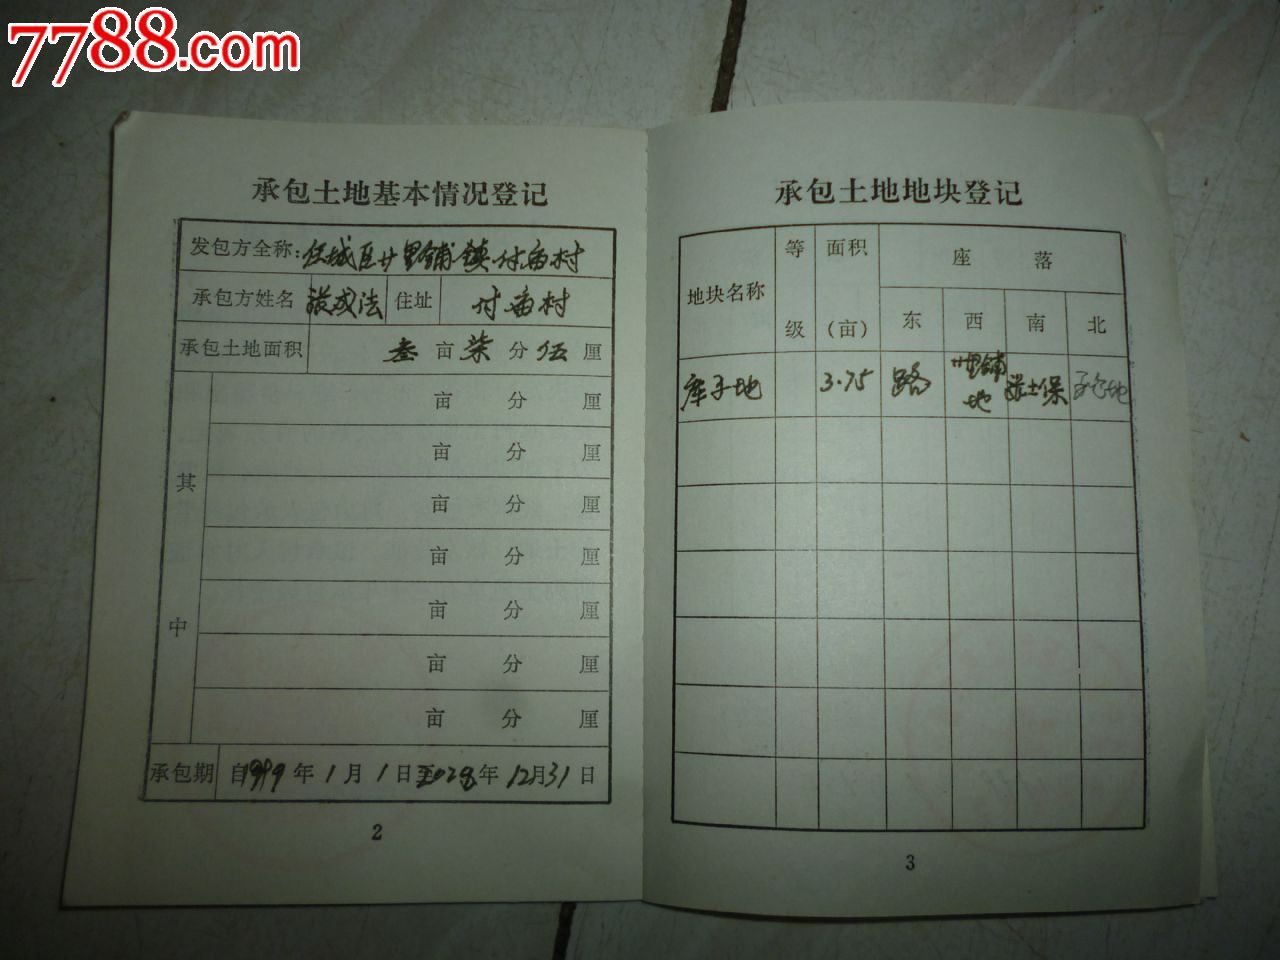 7788.com
承包土地基本情况登记
发包方全称:任城区廿里铺镇付庙村
承包方姓名 张成法 住址 付庙村
承包土地面积 叁亩柒分伍厘
其中
亩 分 厘
亩 分 厘
亩 分 厘
亩 分 厘
亩 分 厘
亩 分 厘
亩 分 厘
承包期 自1999年1月1日至2028年12月31日
2
承包土地地块登记
地块名称 等级 面积(亩) 座落
东 西 南 北
库子地 3.75 路 廿里铺地 张士保 承包地
3